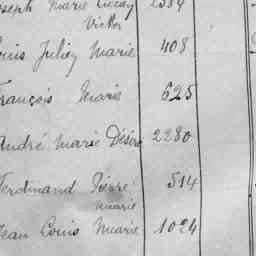 oseph Marie
Victor
ouis Julien Marie 408
rançois Marie 625
André Marie Désiré 2280
Ferdinand Pierre 514
Marie
Jean Louis Marie 1024